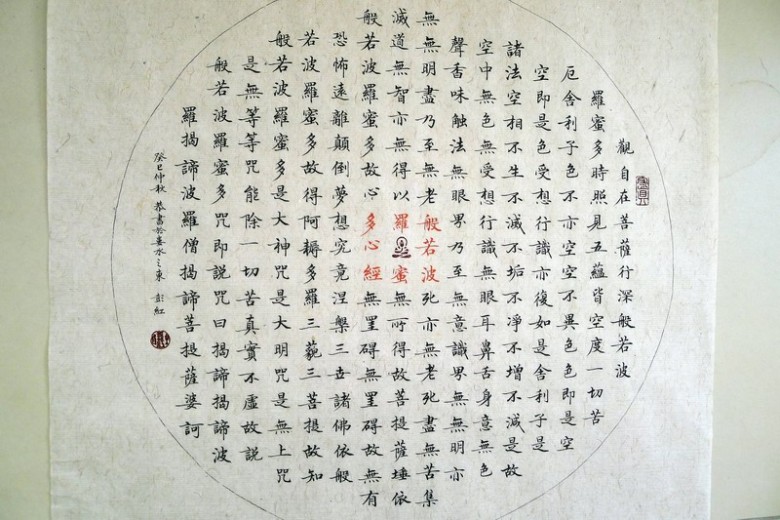 觀自在菩薩行深般若波
羅蜜多時照見五蘊皆空度一切苦
厄舍利子色不亦空空不異色色即是空
空即是色受想行識亦復如是舍利子是
諸法空相不生不滅不垢不淨不增不減是故
空中無色無受想行識無眼耳鼻舌身意無色
聲香味触法無眼界乃至無意識界無無明亦
無無明盡乃至無老般若波死亦無老死盡無苦集
滅道無智亦無得以羅蜜無所得故菩提薩埵依
般若波羅蜜多故心多心經無罣碍無罣碍故無有
恐怖遠離顛倒夢想究竟涅槃三世諸佛依般
若波羅蜜多故得阿耨多羅三藐三菩提故知
般若波羅蜜多是大神咒是大明咒是無上咒
是無等等咒能除一切苦真實不虛故說
般若波羅蜜多咒即說咒曰揭諦揭諦波
羅揭諦波羅僧揭諦菩提薩婆訶
癸巳仲秋 恭書於水之東 彭紅